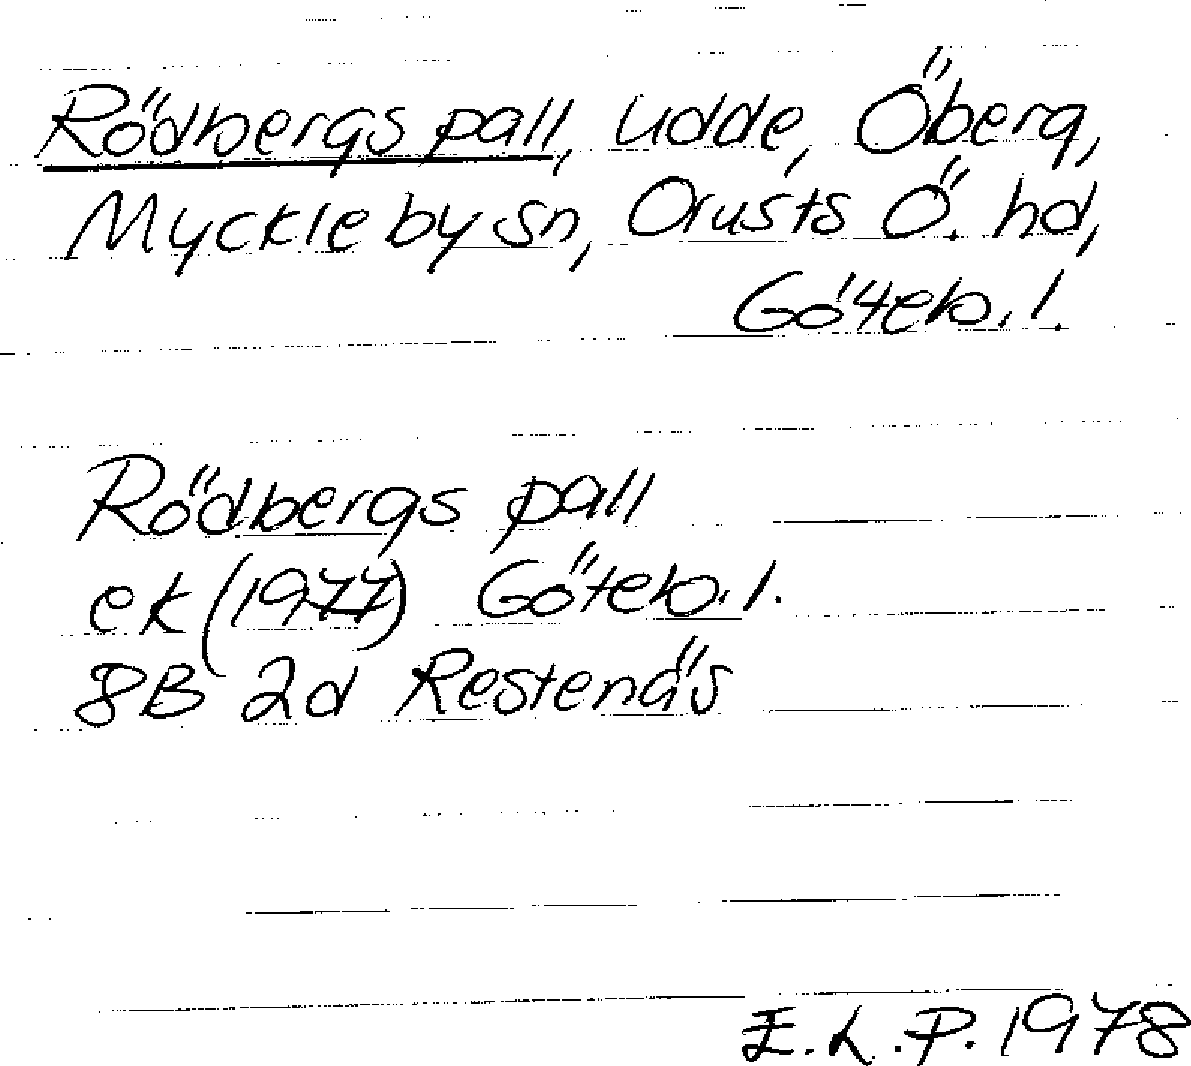 Rödbergs pall, udde, Öberg,
Myckleby sn, Orusts Ö. hd,
Göteb. l.
Rödbergs pall
ek (1977) Göteb. l.
8B 2d Restenäs
E.L.P. 1978